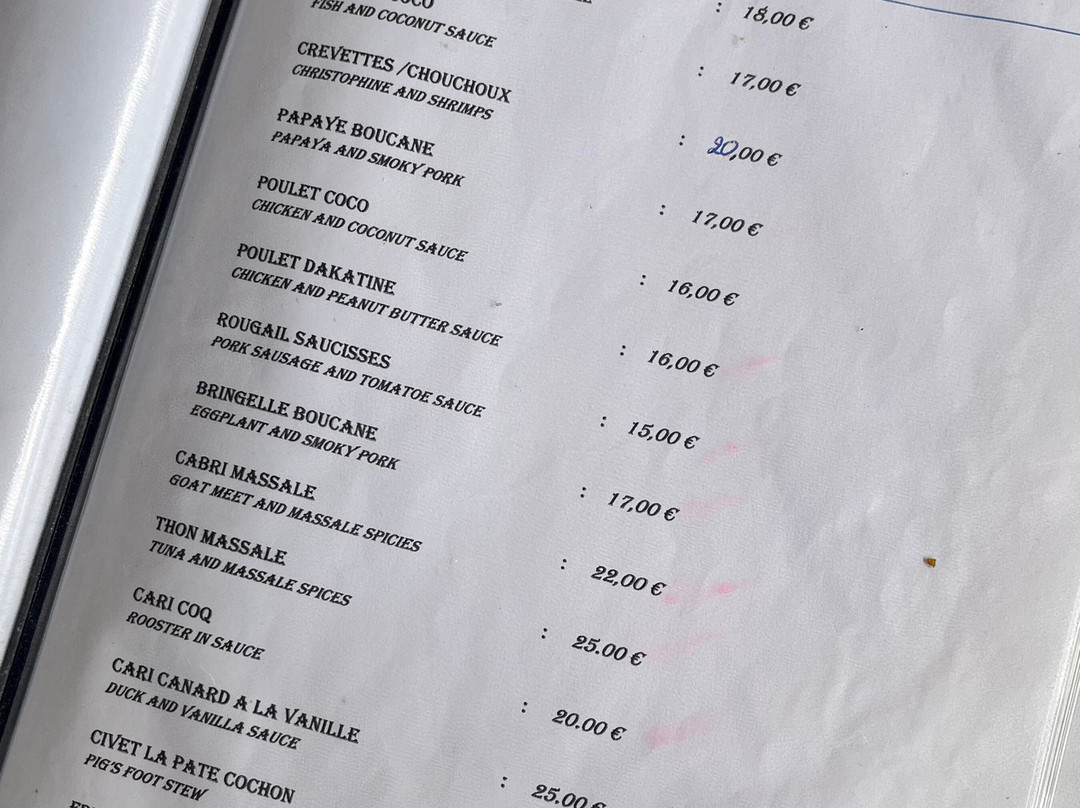 : 18,00 €
: 17,00 €
FISH AND COCONUT SAUCE
CREVETTES /CHOUCHOUX : 20,00 €
CHRISTOPHINE AND SHRIMPS
PAPAYE BOUCANE : 17,00 €
PAPAYA AND SMOKY PORK
POULET COCO : 16,00 €
CHICKEN AND COCONUT SAUCE
POULET DAKATINE : 16,00 €
CHICKEN AND PEANUT BUTTER SAUCE
ROUGAIL SAUCISSES : 15,00 €
PORK SAUSAGE AND TOMATOE SAUCE
BRINGELLE BOUCANE : 17,00 €
EGGPLANT AND SMOKY PORK
CABRI MASSALE : 22,00 €
GOAT MEET AND MASSALE SPICIES
THON MASSALE : 25.00 €
TUNA AND MASSALE SPICES
CARI COQ : 20.00 €
ROOSTER IN SAUCE
CARI CANARD A LA VANILLE : 25.00 €
DUCK AND VANILLA SAUCE
CIVET LA PATE COCHON
PIG'S FOOT STEW